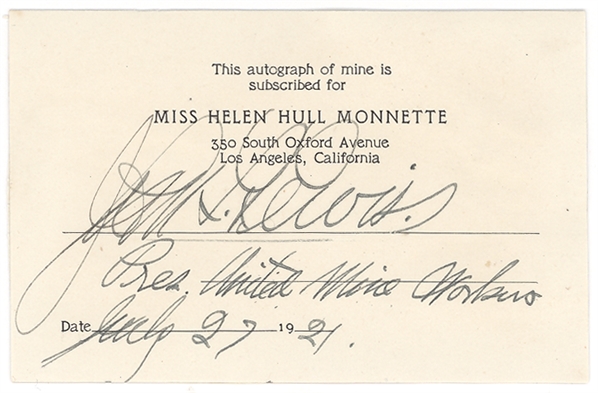 This autograph of mine is
subscribed for
MISS HELEN HULL MONNETTE
350 South Oxford Avenue
Los Angeles, California
John L. Lewis.
Pres. United Mine Workers
Date July 27 1921.